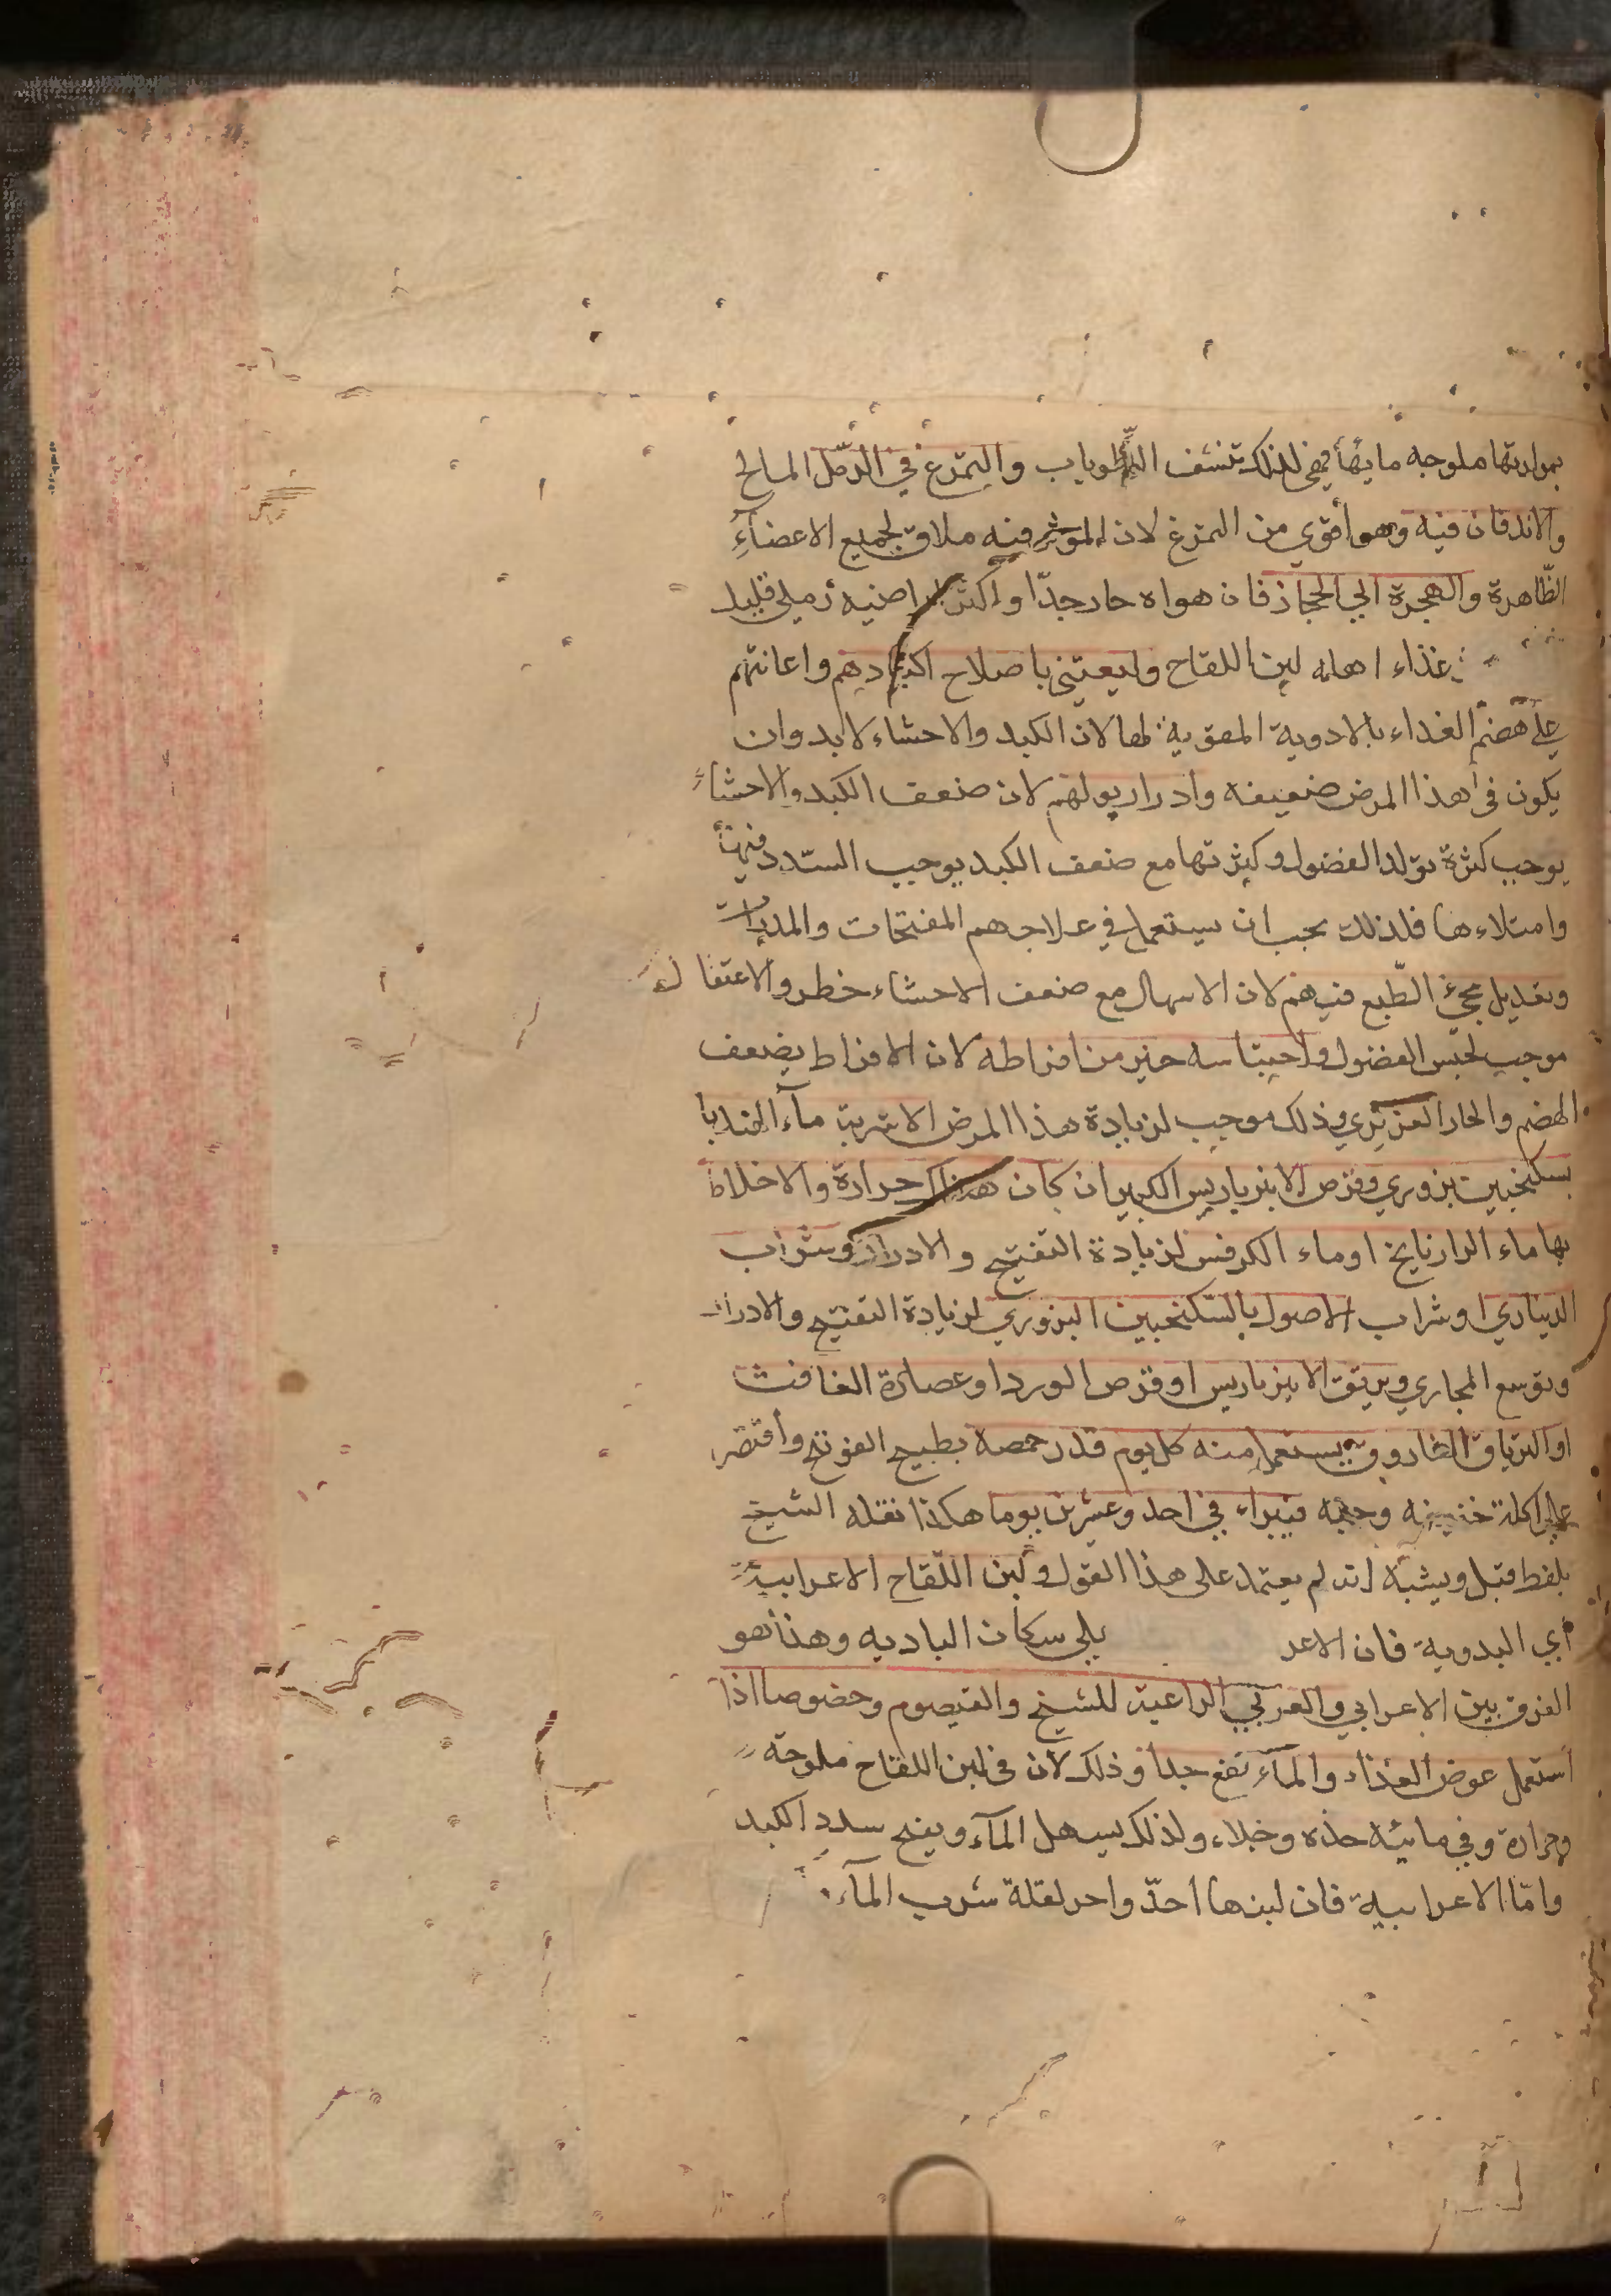 بمرارتها ملوحه مائها فهي لذلك تنشف الرّطوبات والتمرّغ في الرّمل المالح
والاندفان فيه وهو أقوي من التمرّغ لان المؤثر فيه ملاق لجميع الاعضآءِ
الظّاهرة والهجرة الي الحجاز فان هواه حار جدّا واكثر اراضيه رملي قليل
غذاء اهله لبن اللقاح وليعتني باصلاح اكبادهم واعانتهم
علي هضم الغذاء بالادوية المقوية لها لان الكبد والاحشاء لابد وان
يكون في هذا المرض ضعيفه وادرار بولهم لان ضعف الكبد والاحشاء
يوجب كثرة تولد الفضول وكثرتها مع ضعف الكبد يوجب السّدد فيها
وامتلاءها فلذلك يجب ان يستعمل في علاجهم المفتحات والمدرات
وتعديل مجئ الطّبع فيهم لان الاسهال مع ضعف الاحشاء خطر والاعتقال
موجب لحبس الفضول واحتباسه خير من افراطه لان الافراط يضعف
الهضم والحار الغريزي وذلك موجب لزيادة هذا المرض الاشربة مآء الهندبا
بسكنجبين بزوري وقرص الانبرباريس الكبير ان كان هناك حرارة والا خلط
بها ماء الرازيانج اوماء الكرفس لزيادة التفتيح والادرار وشراب
الديناري اوشراب الاصول بالسّكنجبين البزوري لزيادة التفتيح والادرار
وتوسع المجاري وبرتق الانبرباريس اوقرص الورد اوعصارة الغافت
او الترياق الفاروق يستعمل منه كل يوم قدر حمصة بطبيح الفوتنج وأقتصر
علي اكلة خفيفه وجبه فيبراء في احد وعشرين يوما هكذا نقله الشيخ
بلفظ قيل ويشبه انه لم يعتمد على هذا القول ولبن اللّقاح الاعرابيّة
أي البدوية فان الاعر يلي سكان الباديه وهذا هو
الفرق بين الاعرابي والعربي الراعية للشيخ والقيصوم وخصوصا اذا
استعمل عوض الغذاء والمآء نفع جدا وذلك لان في لبن اللقاح ملوحة
وحرارة وفي مائيّه حدّه وجلاء ولذلك يسهل المآء ويفتح سدد الكبد
وامّا الاعرابيه فان لبنها احدّ واحر لقلة شرب المآء